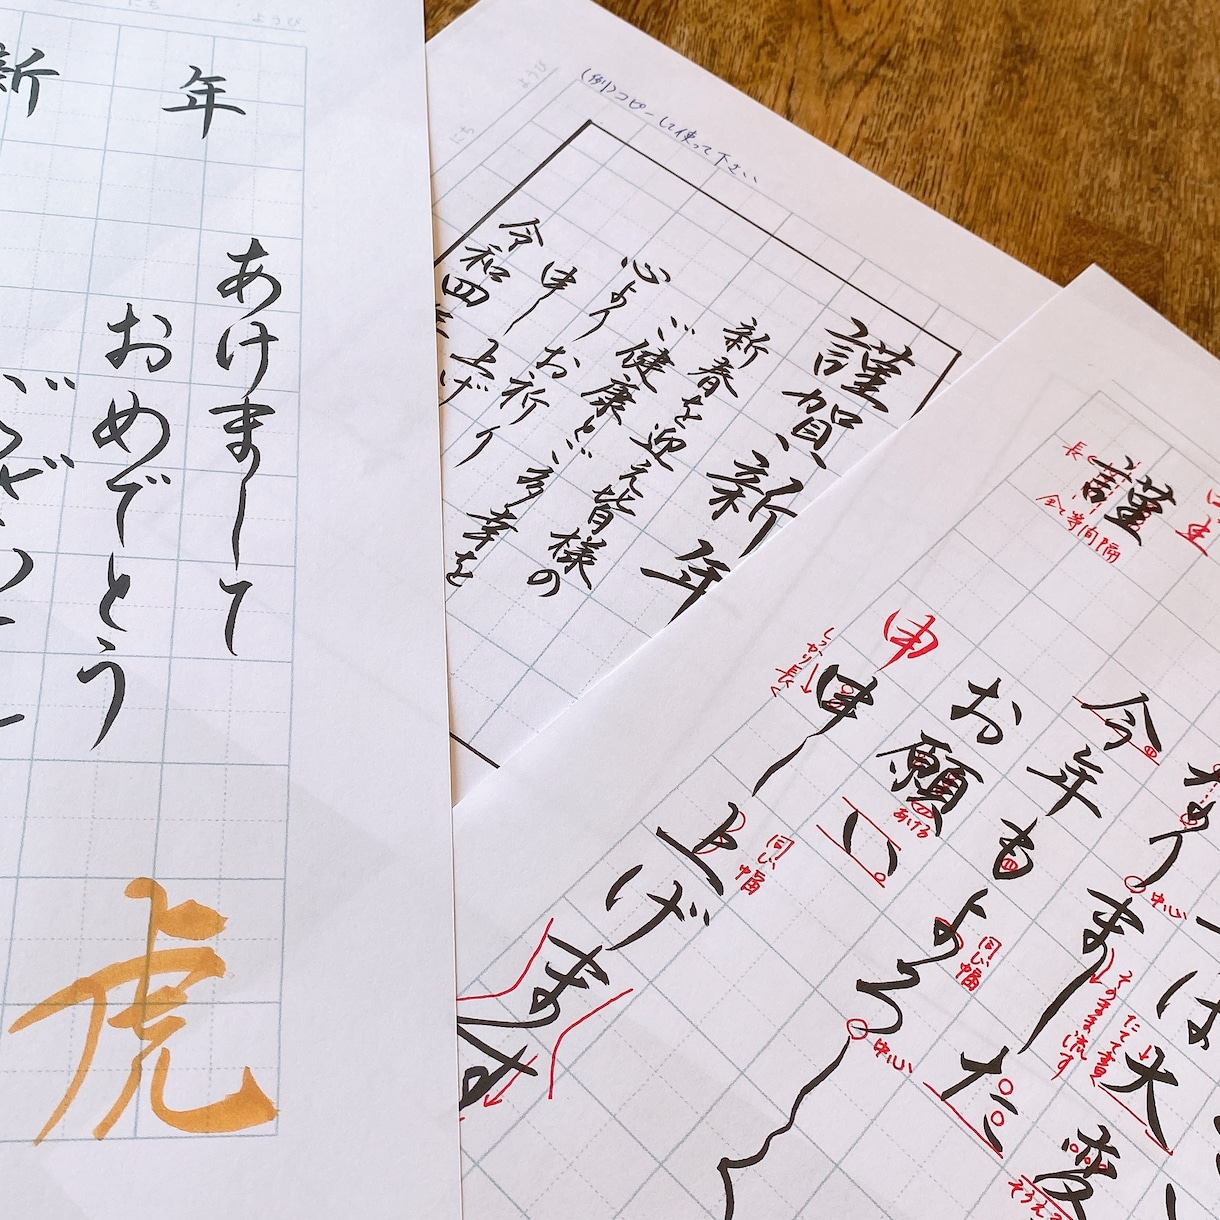 にち
ようび
新年
あけまして
おめでとう
虎
ようび
にち
(例)コピーして使って下さい
謹賀新年
新春を迎え皆様の
ご健康とご多幸を
心よりお祈り
申し上げ
令和四年
謹
長く
全て等間隔
なりまし
そのまま流す
中心
大変
たて書く
今年も
よろ
同じ幅
中心
お願い
あける
申し上げます
申
しっかり長く
同じ幅